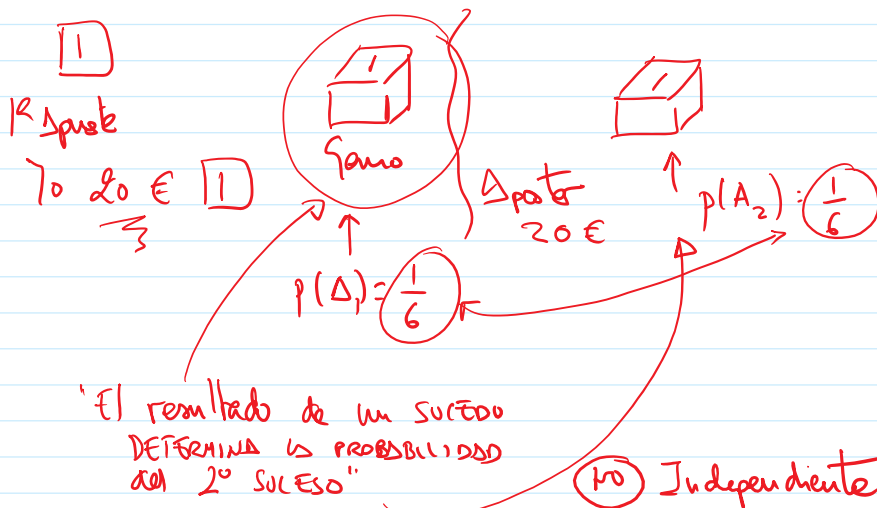 1
1ª Apuesta
Yo 20 € 1
1
Gano
p(A₁) = 1/6
Apostar
20 €
1
p(A₂) = 1/6
"El resultado de un SUCEDO
DETERMINA LA PROBABILIDAD
del 2º SUCESO"
NO Independiente